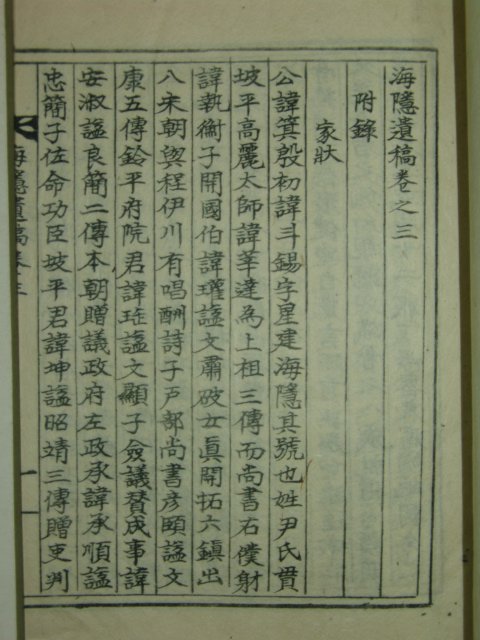 海隱遺稿卷之三
附錄
家狀
公諱箕殷初諱斗錫字星建海隱其號也姓尹氏貫
坡平高麗太師諱莘達為上祖三傳而尚書右僕射
諱執衡子開國伯諱瓘諡文肅破女眞開拓六鎭出
入宋朝與程伊川有唱酬詩子戶部尚書彦頤諡文
康五傳鈴平府院君諱珤諡文顯子僉議贊成事諱
安淑諡良簡二傳本朝贈議政府左政承諱承順諡
忠簡子佐命功臣坡平君諱坤諡昭靖三傳贈吏判
海隱遺稿卷三
一